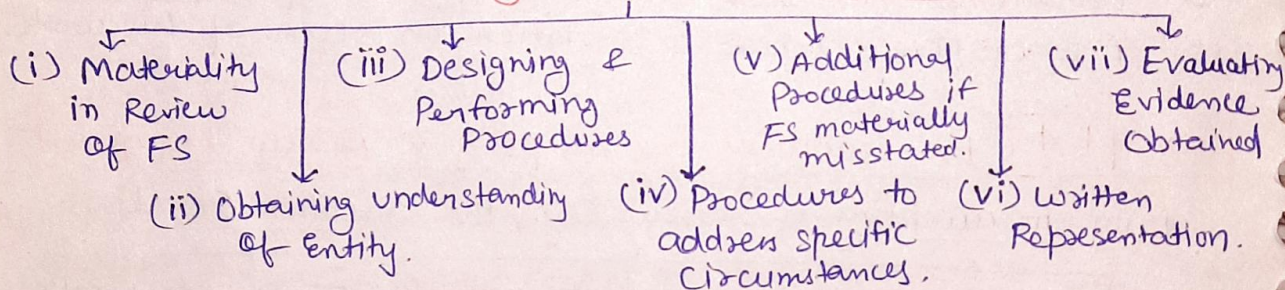 (i) Materiality
in Review
of FS
(ii) Obtaining understanding
of Entity.
(iii) Designing &
Performing
Procedures
(iv) Procedures to
address specific
Circumstances.
(v) Additional
Procedures if
FS materially
misstated.
(vi) Written
Representation.
(vii) Evaluating
Evidence
Obtained